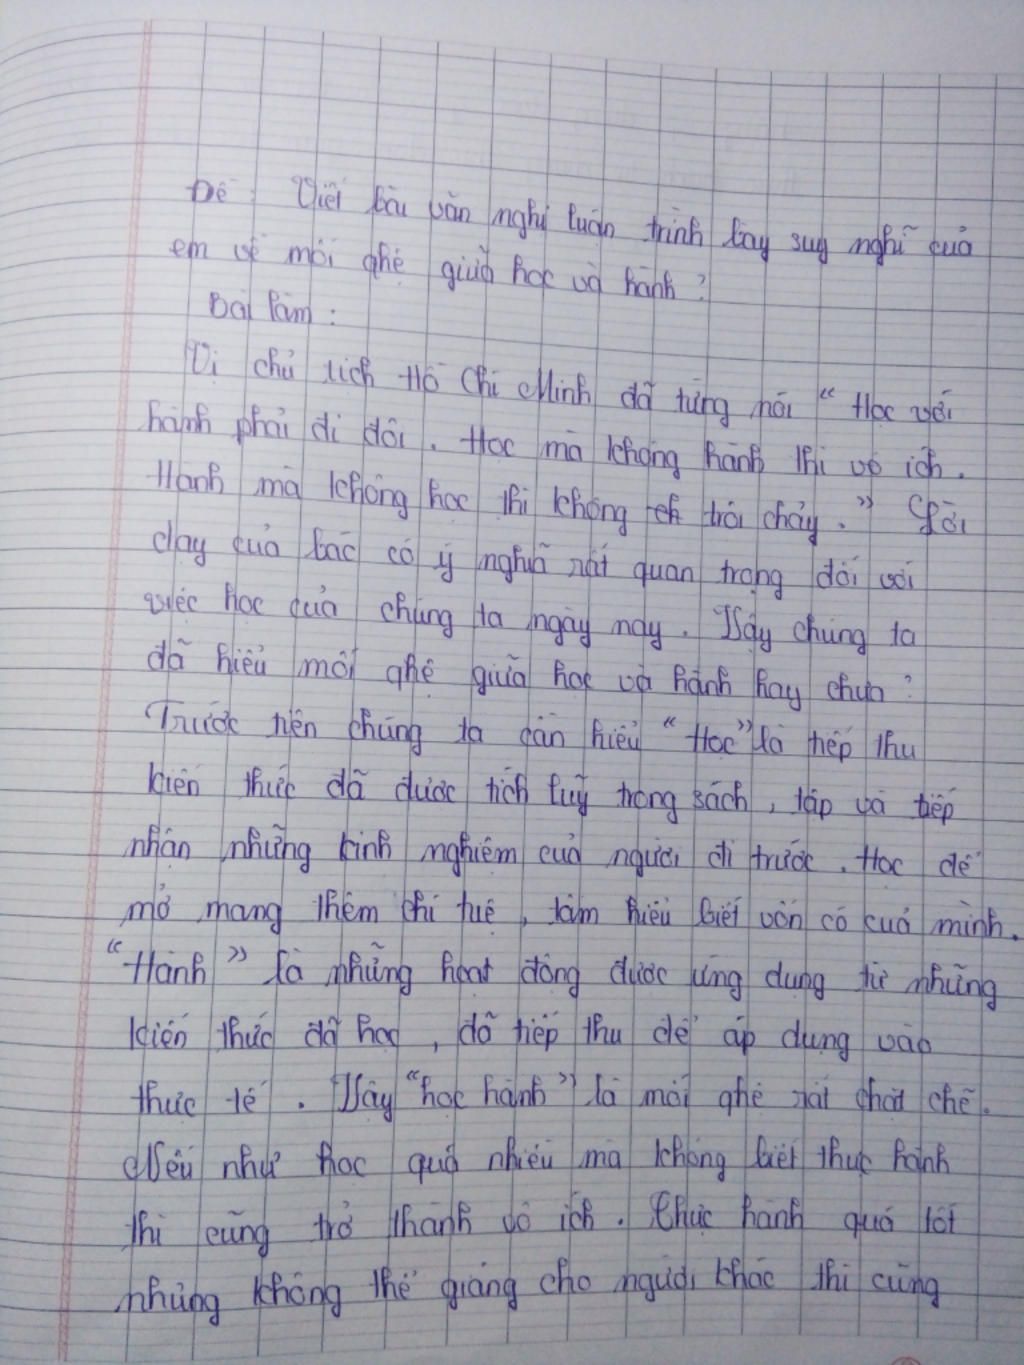 Đề : Viết bài văn nghị luận trình bày suy nghĩ của
em về mối qhệ giữa học và hành ?
Bài làm :
Vị chủ tịch Hồ Chí Minh đã từng nói “ Học với
hành phải đi đôi . Học mà không hành thì vô ích .
Hành mà không học thì không trôi chảy . ” Lời
dạy của bác có ý nghĩa rất quan trọng đối với
việc học của chúng ta ngày nay . Vậy chúng ta
đã hiểu mối qhệ giữa học và hành hay chưa ?
Trước tiên chúng ta cần hiểu “ Học ” là tiếp thu
kiến thức đã được tích luỹ trong sách , tập và tiếp
nhận những kinh nghiệm của người đi trước . Học để
mở mang thêm chí tuệ , tầm hiểu biết vốn có của mình .
“ Hành ” là những hoạt động được ứng dụng từ những
kiến thức đã học , đã tiếp thu để áp dụng vào
thực tế . Vậy “ học hành ” là mối qhệ rất chặt chẽ .
Nếu như học quá nhiều mà không biết thực hành
thì cũng trở thành vô ích . Thực hành quá tốt
nhưng không thể giảng cho người khác thì cũng